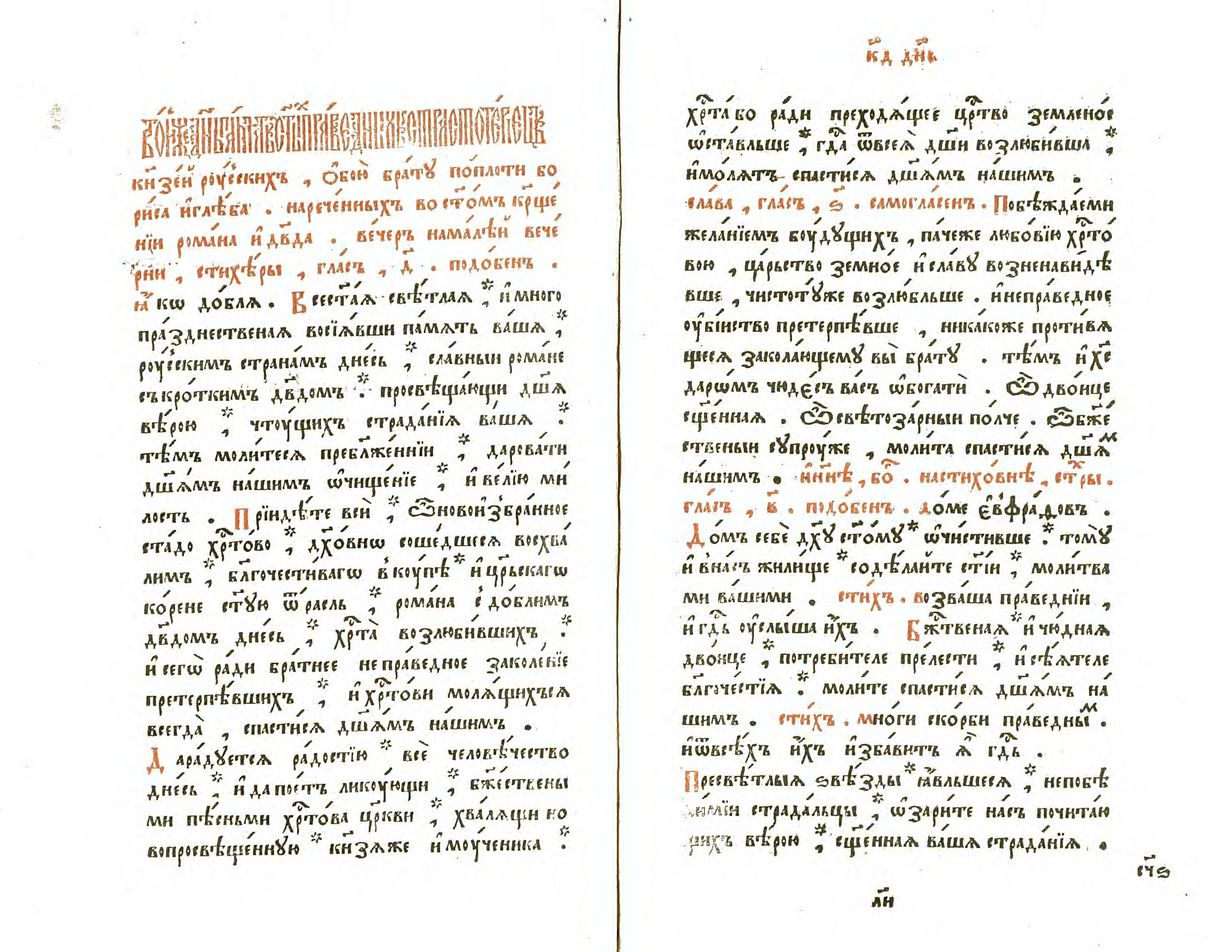 кнѕеи роу́сскихъ , ѻ҆бою̀ бра́тꙋ попло́ти бо
ри́са иглѣ́ба . нарече́нныхъ во ст҃омъ кр҃ще
нїи рома́на и҆ дв҃да . ве́черъ нама́лѣй вече́
рни , стихѣ́ры , гла́съ , д҃ . подо́бенъ .
ꙗ҆́кѡ до́блѧ . Всеста́ѧ свѣ́тлаѧ ⁘ и҆много
пра́зднественаѧ восїѧ́вши па́мѧть ва́шѧ ⁘
роу́сскимъ страна́мъ дне́сь ⁘ сла́вныи рома́не
съкро́ткимъ дв҃домъ ⁘ просвѣща́ющи дш҃ѧ
вѣ́рою ⁘ чтоу́щихъ страда́нїѧ ва́шѧ ⁘
тѣ́мъ моли́тесѧ пребл҃же́ннїи ⁘ дарова́ти
дш҃ѧ́мъ на́шимъ ѡ҆чище́нїе ⁘ и҆ ве́лїю ми́
лость . Прїидѣ́те всѝ ⁘ ѿновои҆збра́нное
ста́до хр҃то́во ⁘ дх҃о́внѡ соше́дшесѧ восхва́
лимъ ⁘ бл҃гочести́вагѡ вкоу́пѣ ⁘ и҆ цр҃ьскагѡ
ко́рене ст҃ꙋю ѿ́расль ⁘ рома́на с до́блимъ
дв҃домъ дне́сь ⁘ хр҃та̀ возлюби́вшихъ ⁘
и҆ сегѡ̀ ра́ди бра́тнее непра́ведное заколе́нїе
претерпѣ́вшихъ ⁘ и҆ хр҃то́ви молѧ́щихъсѧ
всегда̀ , спасти́сѧ дш҃ѧ́мъ на́шимъ .
Дара́дꙋетсѧ ра́достїю ⁘ всѐ человѣ́чество
дне́сь ⁘ и҆ да пое́тъ лико́ующи ⁘ бж҃е́ствены
ми пѣ́сньми хр҃то́ва цр҃кви ⁘ хва́лѧщи но
вопросвѣще́ннꙋю ⁘ кнѧ́зѧже и҆моу́ченика ⁘
к҃д дн҃ь
хр҃та́бо ра́ди преходѧ́щее цр҃тво земле́ное
ѡ҆ста́вльше ⁘ гд҃а ѿвсеѧ̀ дш҃и возлюби́вша ⁘
и҆мо́лѧтъ спасти́сѧ дш҃ѧ́мъ на́шимъ .
сла́ва , гла́съ , ѕ҃ . самогла́сенъ . Побѣжда́еми
жела́нїемъ боу́дꙋщихъ , па́чеже любо́вїю хр҃то́
вою , ца́рьство земно́е и҆ сла́вꙋ возненави́дѣ
вше , чистотꙋ́же возлю́бльше . и҆непра́ведное
оу҆бі́йство претерпѣ́вше , ника́коже проти́вѧ
щесѧ закола́ющемꙋ вы̀ бра́тꙋ . тѣ́мъ и҆ х҃с
да́рѡмъ чюде́съ ва́съ ѡ҆богатѝ . Ѽ дво́ице
сщ҃е́ннаѧ . Ѽ свѣтоза́рныи по́лче . Ѽ бж҃е́
ственыи сꙋпроу́же , моли́та спасти́сѧ дш҃ѧ́м
на́шимъ . и҆ нн҃ѣ , бо҃ . настихо́внѣ , ст҃ры .
гла́съ , в҃ . подо́бенъ . до́ме є҆вфра́довъ .
До́мъ себѐ дх҃ꙋ ст҃о́мꙋ ⁘ ѡ҆чи́стивше ⁘ то́мꙋ
и҆ вна́съ жили́ще ⁘ содѣ́лаите ст҃і́и ⁘ моли́тва
ми ва́шими . сти́хъ . возва́ша пра́веднїи ,
и҆ гд҃ь оу҆слы́ша и҆́хъ . Бж҃твенаѧ ⁘ и҆ чю́днаѧ
дво́ице ⁘ потреби́теле пре́лести ⁘ и҆ сѣ́ѧтеле
бл҃гоче́стїѧ ⁘ моли́те спасти́сѧ дш҃ѧ́мъ на́
шимъ . сти́хъ . мно́ги ско́рби пра́ведны́м .
и҆ ѿвсѣ́хъ и҆́хъ и҆зба́витъ ѧ҆̀ гд҃ь .
Пресвѣ́тлыѧ ѕвѣ́зды ⁘ ꙗ҆́вльшесѧ ⁘ непобѣ
страда́льцы ⁘ ѡ҆зари́те на́съ почита́ю
щихъ вѣ́рою ⁘ сщ҃е́ннаѧ ва́шѧ страда́нїѧ .
сч҃ѕ
л҃и